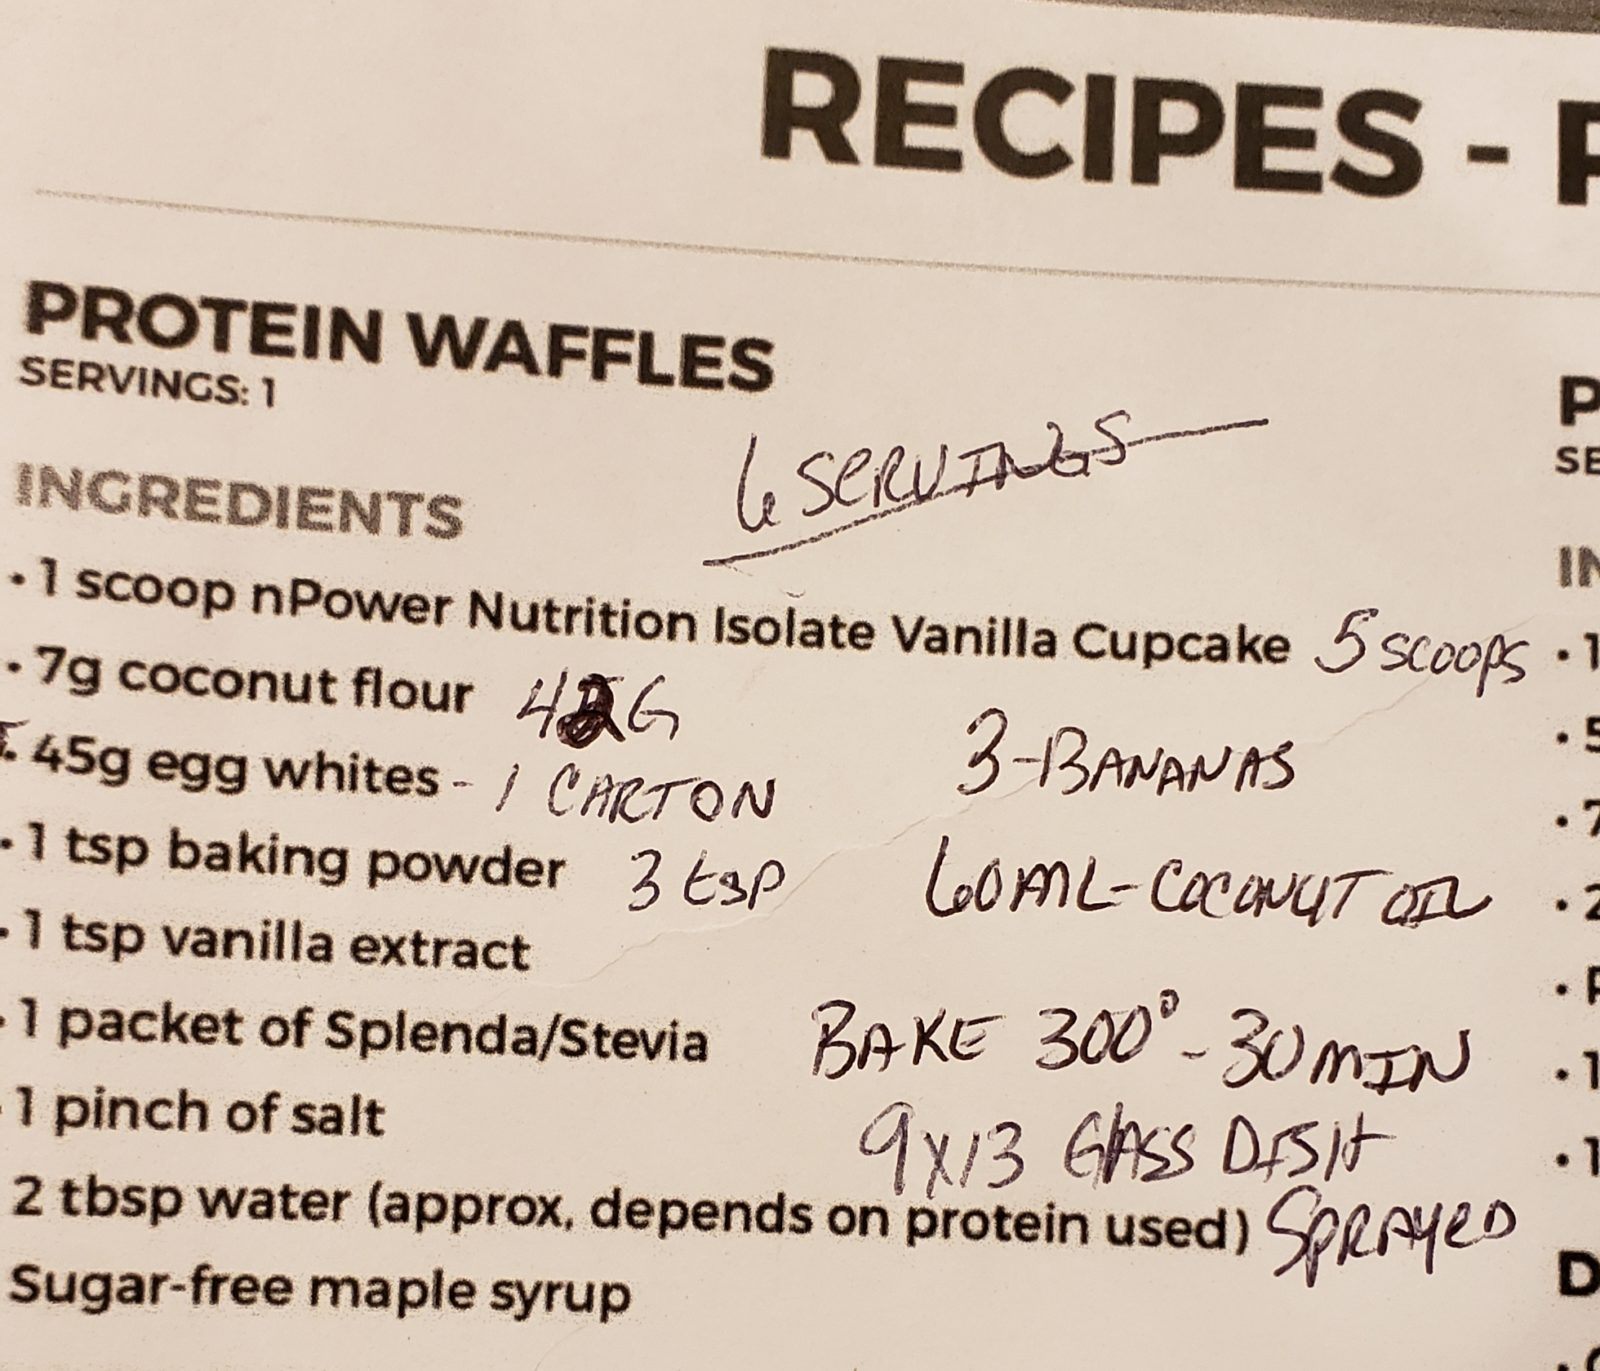 RECIPES -
PROTEIN WAFFLES
SERVINGS: 1
6 SERVINGS
INGREDIENTS
• 1 scoop nPower Nutrition Isolate Vanilla Cupcake 5 SCOOPS
• 7g coconut flour 42G
3-BANANAS
• 45g egg whites - 1 CARTON
• 1 tsp baking powder 3 tsp
60ML-COCONUT OIL
• 1 tsp vanilla extract
• 1 packet of Splenda/Stevia
BAKE 300° - 30 MIN
• 1 pinch of salt
9x13 GLASS DISH
2 tbsp water (approx, depends on protein used) SPRAYED
Sugar-free maple syrup